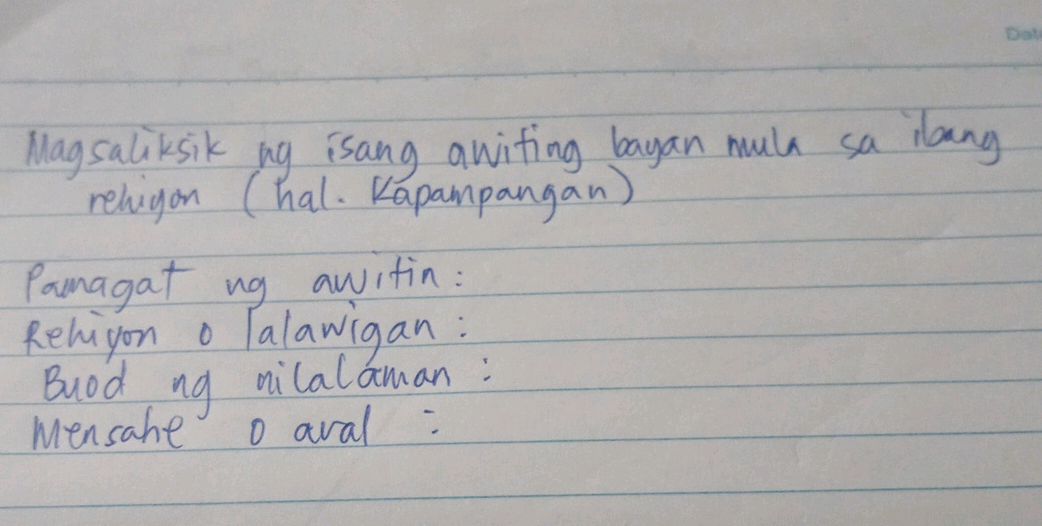 Dat
Magsaliksik ng isang awiting bayan mula sa ibang
rehiyon (hal. Kapampangan)
Pamagat ng awitin :
Rehiyon o lalawigan :
Buod ng nilalaman :
Mensahe o aral :